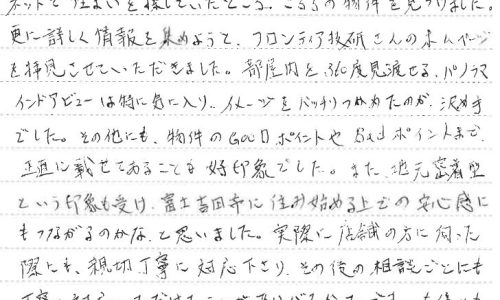 ネットで住まいを探していたところ、こちらの物件を見つけました。
更に詳しく情報を集めようと、フロンティア技研さんのホームページ
を拝見させていただきました。部屋内を360度見渡せる、パノラマ
インドアビューは特に気に入り、イメージをバッチリつかめたのが、決め手
でした。その他にも、物件のGOODポイントやBadポイントまで、
正直に載せてあることも好印象でした。また、地元密着型
という印象も受け、富士吉田市に住み始める上での安心感に
もつながるのかな、と思いました。実際に店舗の方に伺った
際にも、親切丁寧に対応下さり、その後の相談ごとにも